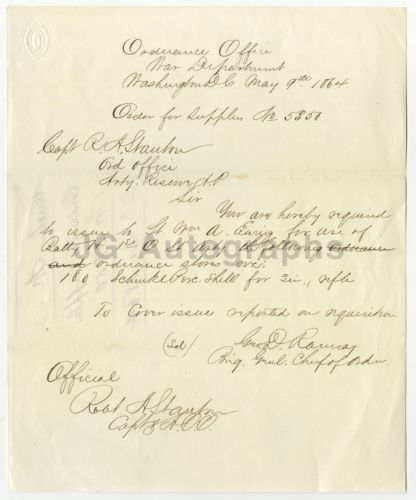 Ordnance Office
War Department
Washington D.C. May 9th 1864
Order for Supplies No 5350
Capt R. A. Stanton
Ord office
Arty. Reserve A.P
Sir
You are hereby required
to issue to Lt Wm A. Ewing for use of
Batty H 1st O. Lt Arty the following ordnance
and ordnance stores viz:
180 Schenkl Perc. Shell for 3in., rifle
To Cover issues reported on requisition
(Sd) Geo. D. Ramsay
Brig. Genl. Chief of Ordn.
Official
Robt. A Stanton
Capt & A.O.O.
JG Autographs